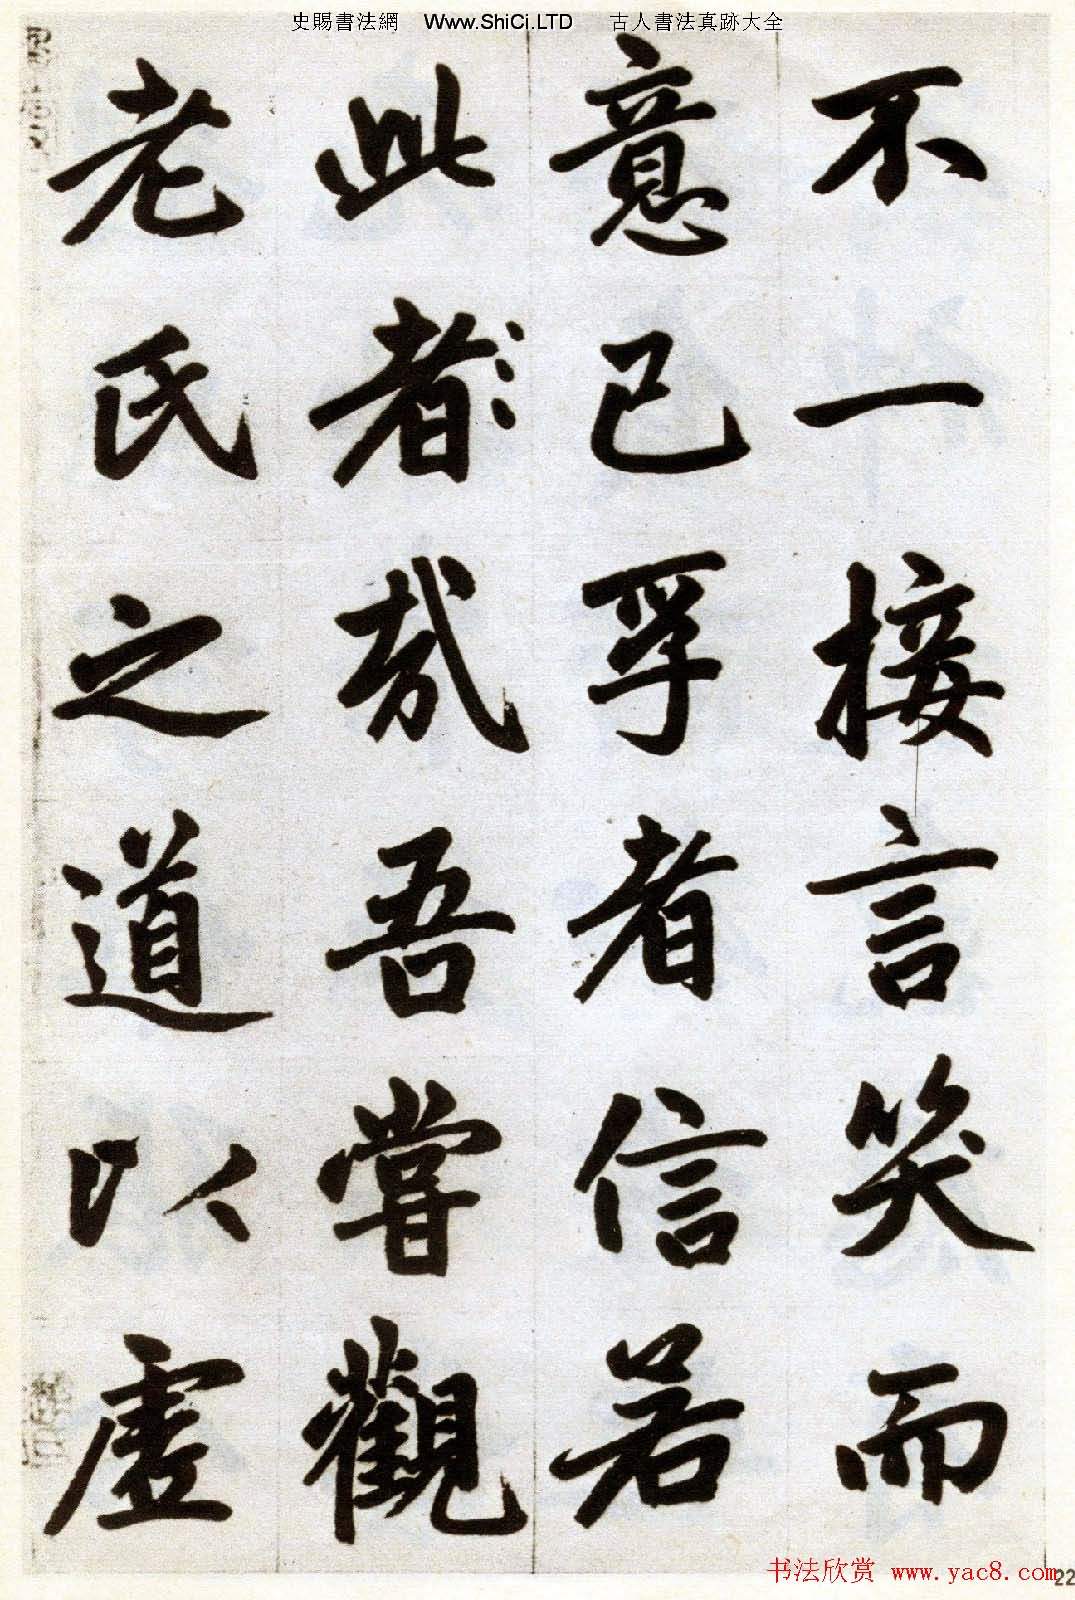 史賜書法網 Www.ShiCi.LTD 古人書法真跡大全
不一接言笑而
意已孚者信若
此者哉吾嘗觀
老氏之道以虛
书法欣赏 www.yac8.com
22